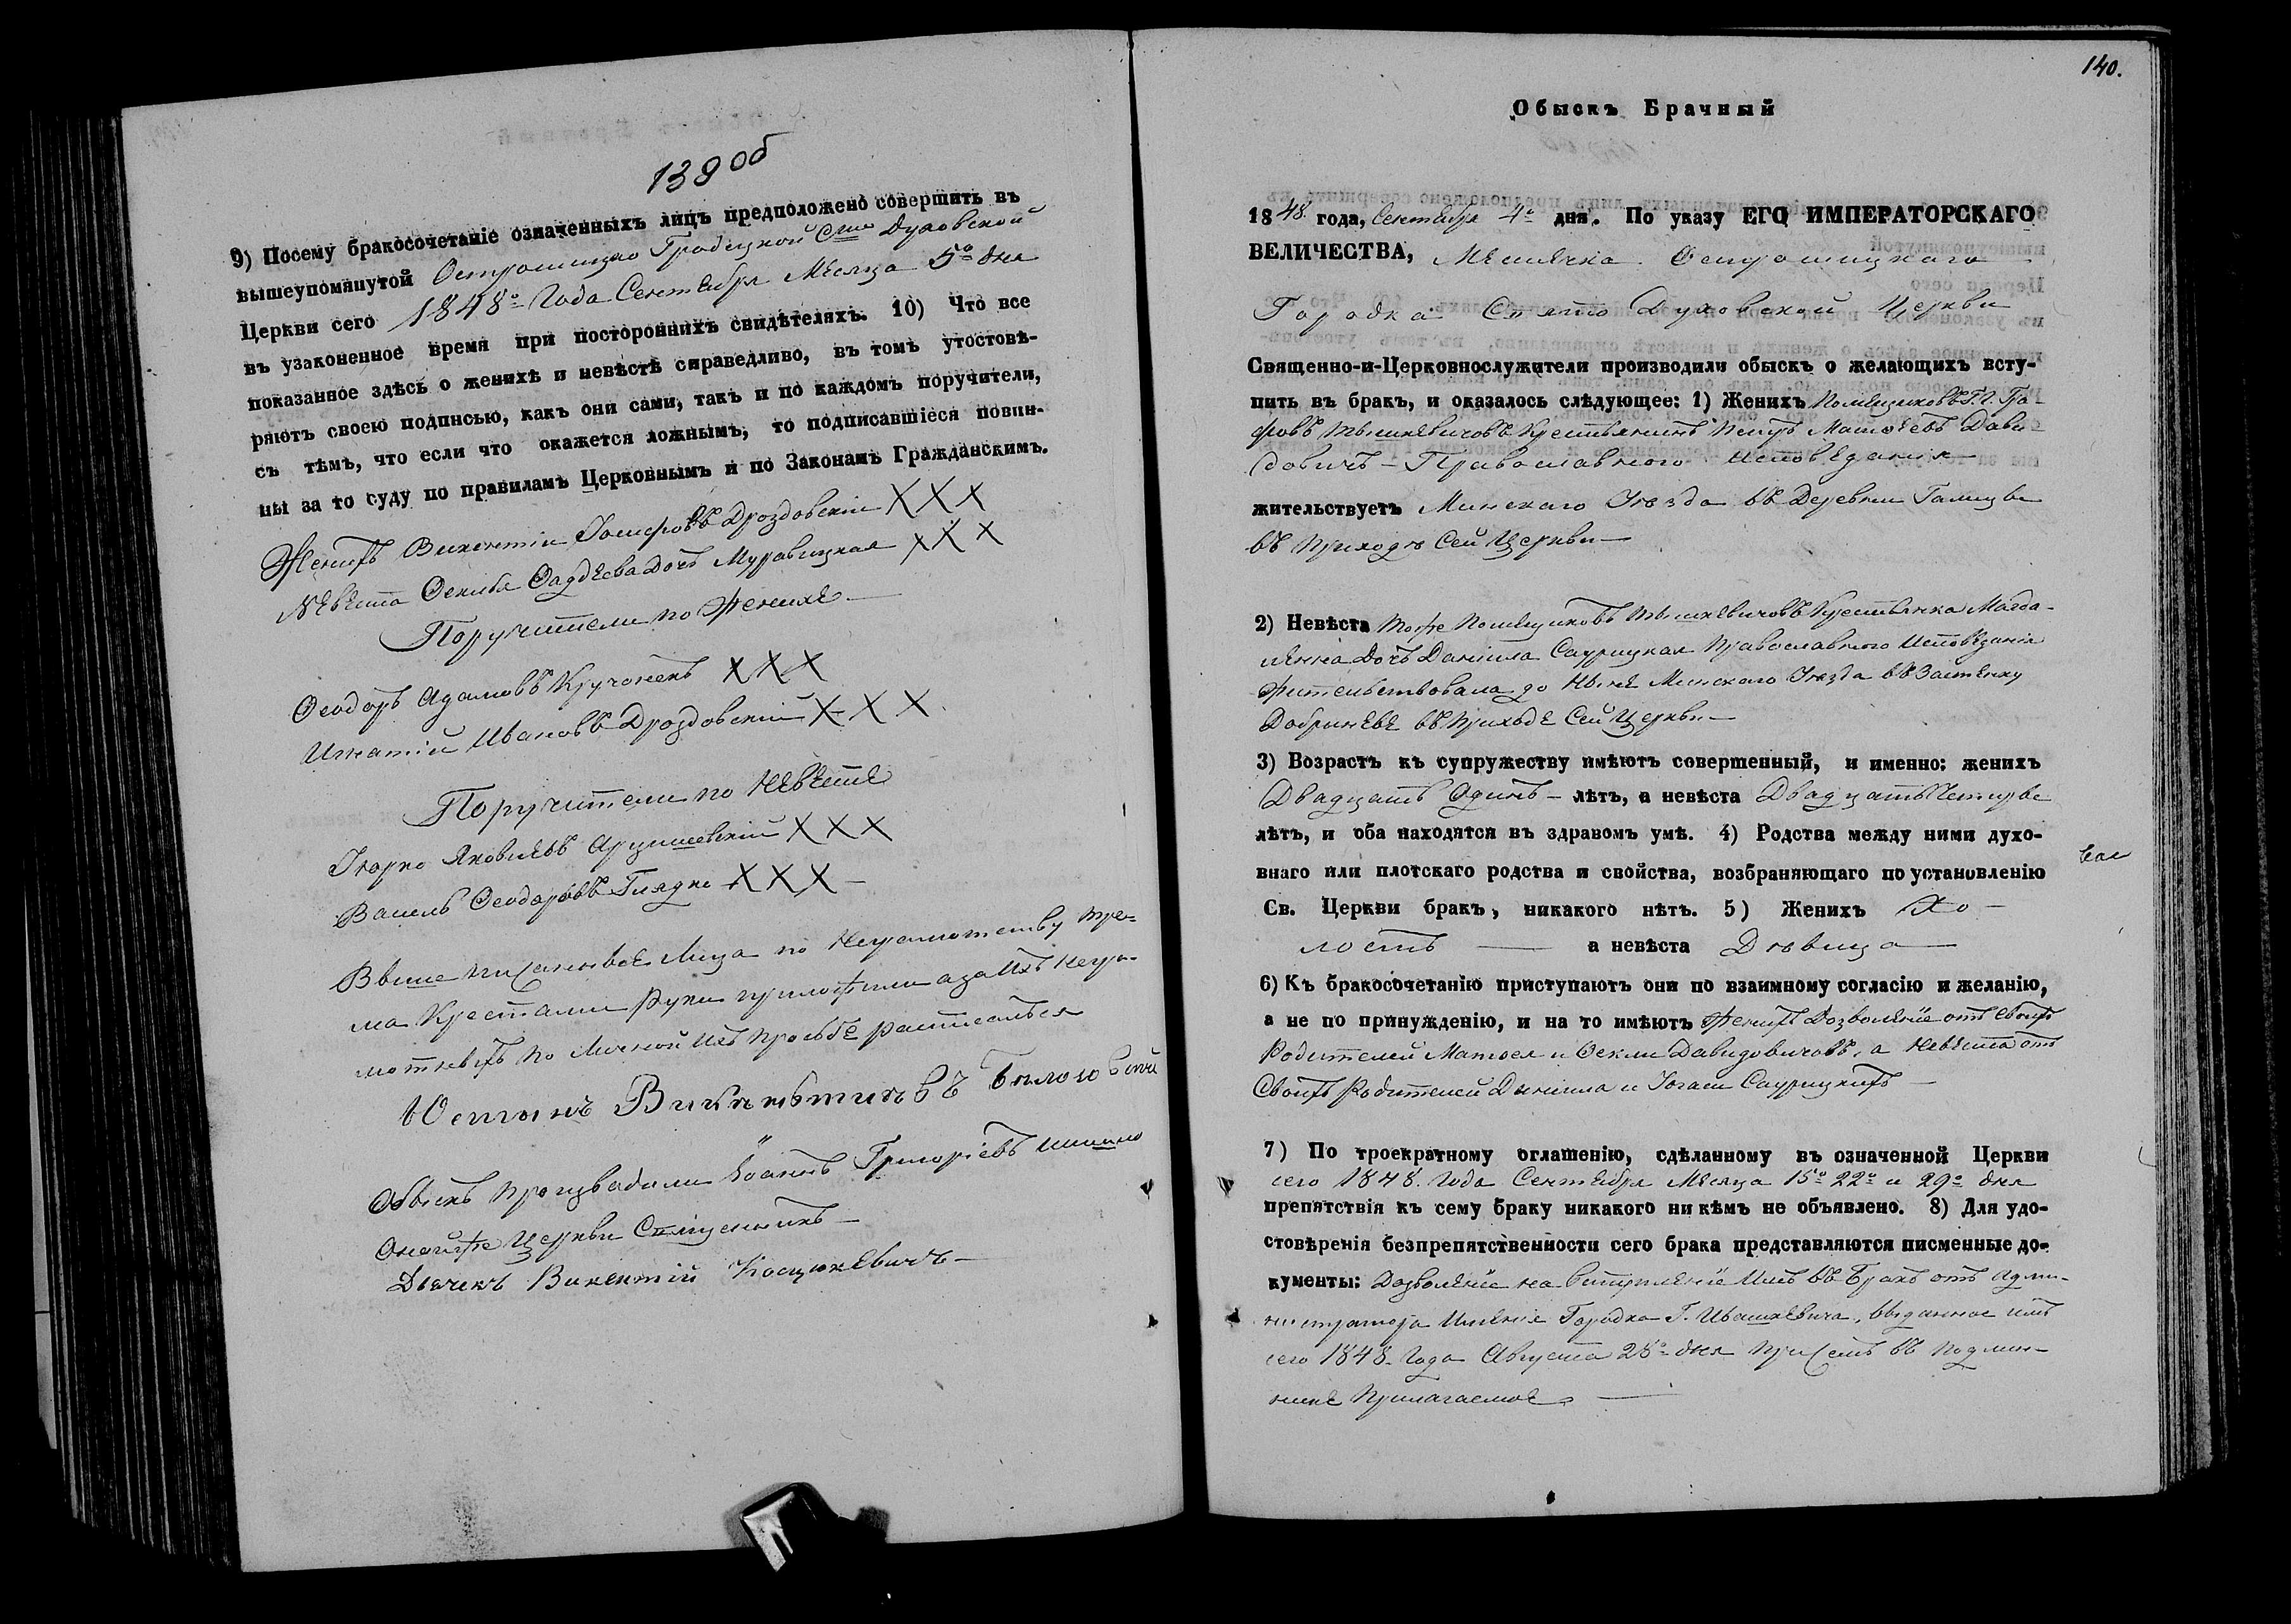 139 об
9) Посему бракосочетаніе означенныхъ лицъ предположено совершить въ
вышеупомянутой Острошицко Градецкой Сто Духовской
Церкви сего 1848го Года Сентября Месяца 5го дня
въ узаконенное время при постороннихъ свидѣтеляхъ. 10) Что все
показанное здѣсь о женихѣ и невѣстѣ справедливо, въ томъ утостовѣ-
ряютъ своею подписью, какъ они сами, такъ и по каждомъ поручители,
съ тѣмъ, что если что окажется ложнымъ, то подписавшіеся повин-
ны за то суду по правиламъ Церковнымъ и по Законамъ Гражданскимъ.
Женихъ Викентій Іосифовъ Дроздовскій XXX
Невеста Фекла Фаддеева Дочь Муравицкая XXX
Поручители по Женихе
Феодоръ Адамовъ Кручонекъ XXX
Игнатій Ивановъ Дроздовскій XXX
Поручители по Невесте
Яковлевъ Арцишевскій XXX
Василь Феодоровъ XXX
Выше писанные Лица по Неграмотству тре-
ма Крестами Руки приложили а за Ихъ Негра-
мотныхъ по Личной Ихъ прозьбе расписался
Юстынъ Викентиевъ
Обыскъ Производили Іоаннъ Григоріевъ
Онойже Церкви Священникъ
Дьячекъ Викентій Косцюкевичъ
140.
Обыскъ Брачный
1848 года, Сентября 4го дня. По указу ЕГО ИМПЕРАТОРСКАГО
ВЕЛИЧЕСТВА, Местечка Острошицкаго
Городка Свято Духовской Церкви
Священно-и-Церковнослужители производили обыскъ о желающихъ всту-
пить въ бракъ, и оказалось слѣдующее: 1) Женихъ Помещиковъ Г.Г. Гра-
фовъ Тышкевичовъ Крестьянинъ Петръ Матвеевъ Дави-
довичъ – Православного Исповеданія
жительствуетъ Минскаго Уезда въ Деревни Галицы
въ приходе Сей Церкви
2) Невѣста тоже Помещиковъ Тышкевичовъ Крестьянка Магда-
лена Дочь Даніила Саурицкая Православного Исповеданія
Жительствовала до Ныне Минскаго Уезда въ Застенку
Добриневе въ Приходе Сей Церкви
3) Возрастъ къ супружеству имѣютъ совершенный, и именно: женихъ
Двадцать Одинъ – лѣтъ, а невѣста Двадцать Четыре
лѣтъ, и оба находятся въ здравомъ умѣ. 4) Родства между ними духо-
внаго или плотскаго родства и свойства, возбраняющаго по установленію
Св. Церкви бракъ, никакого нѣтъ. 5) Женихъ Хо-
лостъ а невѣста Девица
6) Къ бракосочетанію приступаютъ они по взаимному согласію и желанію,
а не по принужденію, и на то имѣютъ Женихъ Дозволеніе отъ Своихъ
Родителей Матвея и Феклы Давидовичовъ, а Невеста отъ
Своихъ Родителей Даніила и Саурицкихъ
7) По троекратному оглашенію, сдѣланному въ означенной Церкви
сего 1848 Года Сентября Месяца 15го 22го и 29го дня
препятствія къ сему браку никакого ни кѣмъ не объявлено. 8) Для удо-
стовѣренія безпрепятственности сего брака представляются писменные до-
кументы: Дозволеніе на Вступленіе Имъ въ Бракъ отъ Адми-
нистратора Именія Городка Г. Ивашкевича, выданное имъ
сего 1848 Года Августа 28го дня при семъ въ Подлин-
нике Прилагаемое